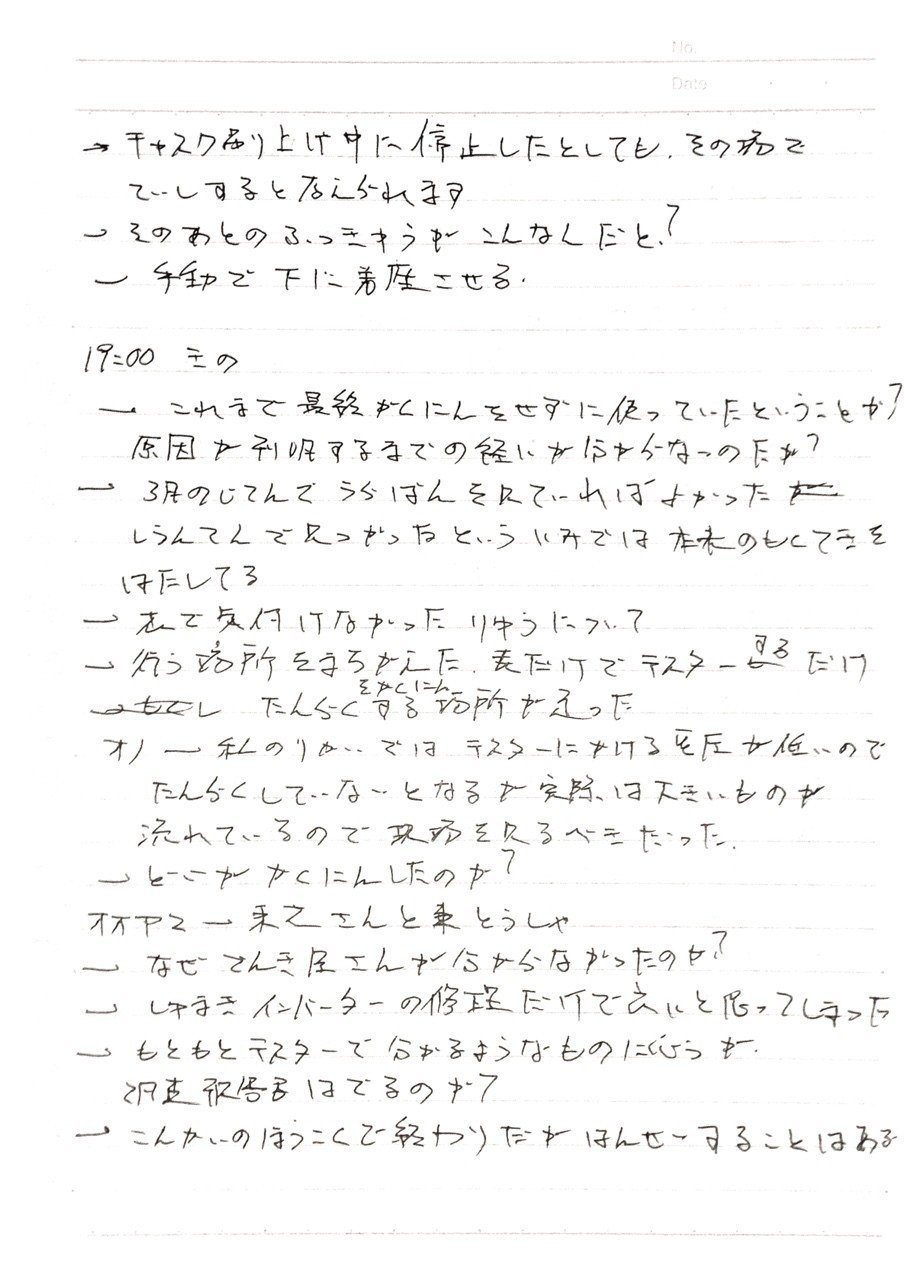 No.
Date
→ キャスク吊り上げ中に停止したとしても、その場で
てーしすると考えられます
→ そのあとのふっきゅうがこんなんだと?
→ 手動で下に着座させる.
19:00 その
→ これまで最終かくにんをせずに使っていたということか?
原因が判明するまでの経いが分からなったか?
→ 3月のじてんでうらばんを見ていればよかった
しうんてんで見つかったといういみでは本来のもくてきを
はたしてる
→ 表で気付けなかったりゆうについて
→ 行う場所をまちがえた、表だけでテスターするだけ
たんらくをかくにんする場所が違った
オノ → 私のりかいではテスターにかける電圧が低いので
たんらくしていないとなるが実際は大きいものが
流れているので現場を見るべきだった.
→ どこがかくにんしたのか?
オオヤマ → さんと とうしゃ
→ なぜでんき屋さんが分からなかったのか?
→ しゅまきインバーターの修理だけで良いと思ってしまった
→ もともとテスターで分かるようなものに思うが.
調査報告書はでるのか?
→ こんかいのほうこくで終わりだがはんせーすることはある